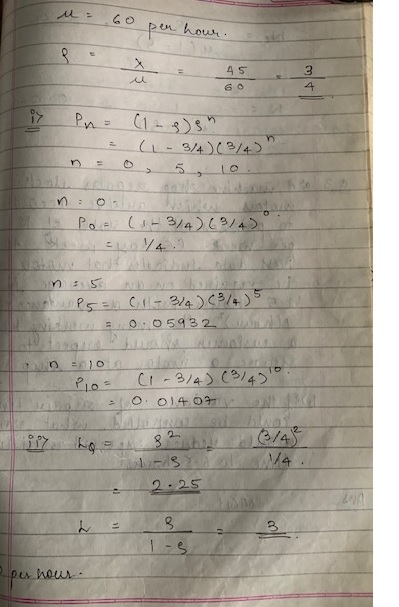 μ = 60 per hour.
ρ = λ/μ = 45/60 = 3/4
i> Pn = (1 - ρ) ρ^n
= (1 - 3/4) (3/4)^n
n = 0, 5, 10.
n = 0
P0 = (1 - 3/4) (3/4)^0.
= 1/4.
n = 5
P5 = (1 - 3/4) (3/4)^5
= 0.05932
n = 10
P10 = (1 - 3/4) (3/4)^10.
= 0.01407
ii> LQ = ρ^2/1 - ρ = (3/4)^2/1/4.
= 2.25
L = ρ/1 - ρ = 3.
per hour.